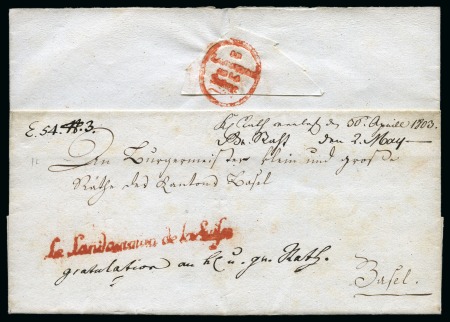 E. 54. 3.
Kl. Rath den 30. Aprill 1803.
Gr. Rath den 2. May
Den Bürgermeister klein und große
Räthe des Kantons Basel
Le Landamman de la Suisse
gratulation an kl. u. gr. Rath.
Basel.